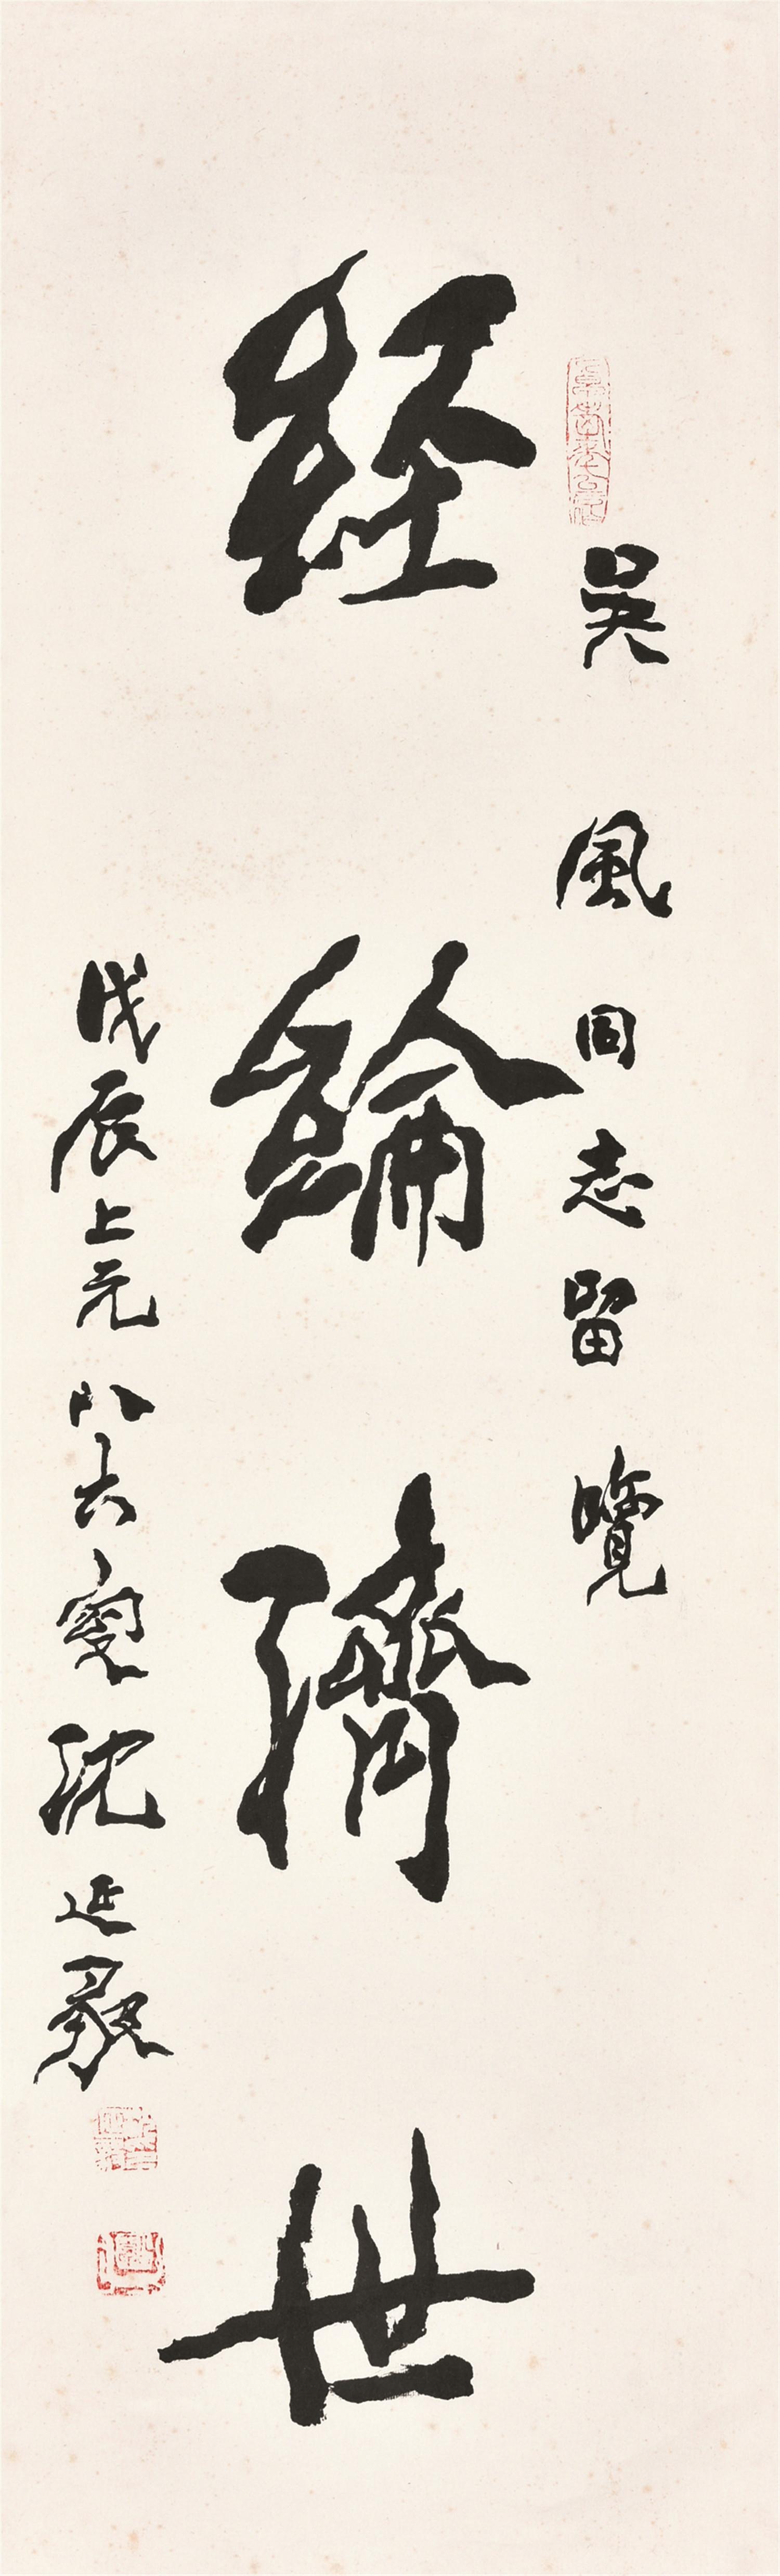 吳風同志留覽
經綸濟世
戊辰上元八六叟沈延毅